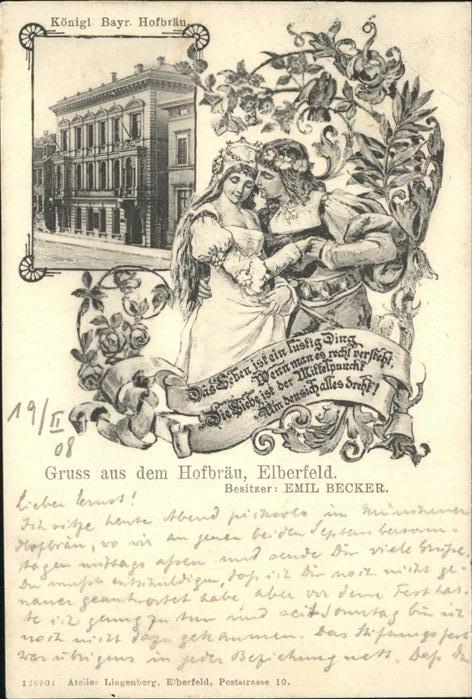 Königl. Bayr. Hofbräu.
Das Leben ist ein lustig Ding
Wenn man es recht versteht,
Die Liebe ist der Mittelpunckt
Um den sich alles dreht!
19/II
08
Gruss aus dem Hofbräu, Elberfeld.
Besitzer: EMIL BECKER.
Lieber Ernst!
Ich sitze heute Abend piccolo im Münchener
Hofbräu, wo wir an jenen beiden
tagen mittags assen und sende Dir viele Grüsse.
Du musst entschuldigen, dass ich Dir noch nicht ge-
nauer geantwortet habe, aber vor dem Fest hat-
te ich genug zu tun und seit Sonntag bin ich
noch nicht dazu gekommen. Das Stiftungsfest
war übrigens in jeder Beziehung nett. Dass Du
126901 Atelier Lingenberg, Elberfeld, Poststrasse 10.